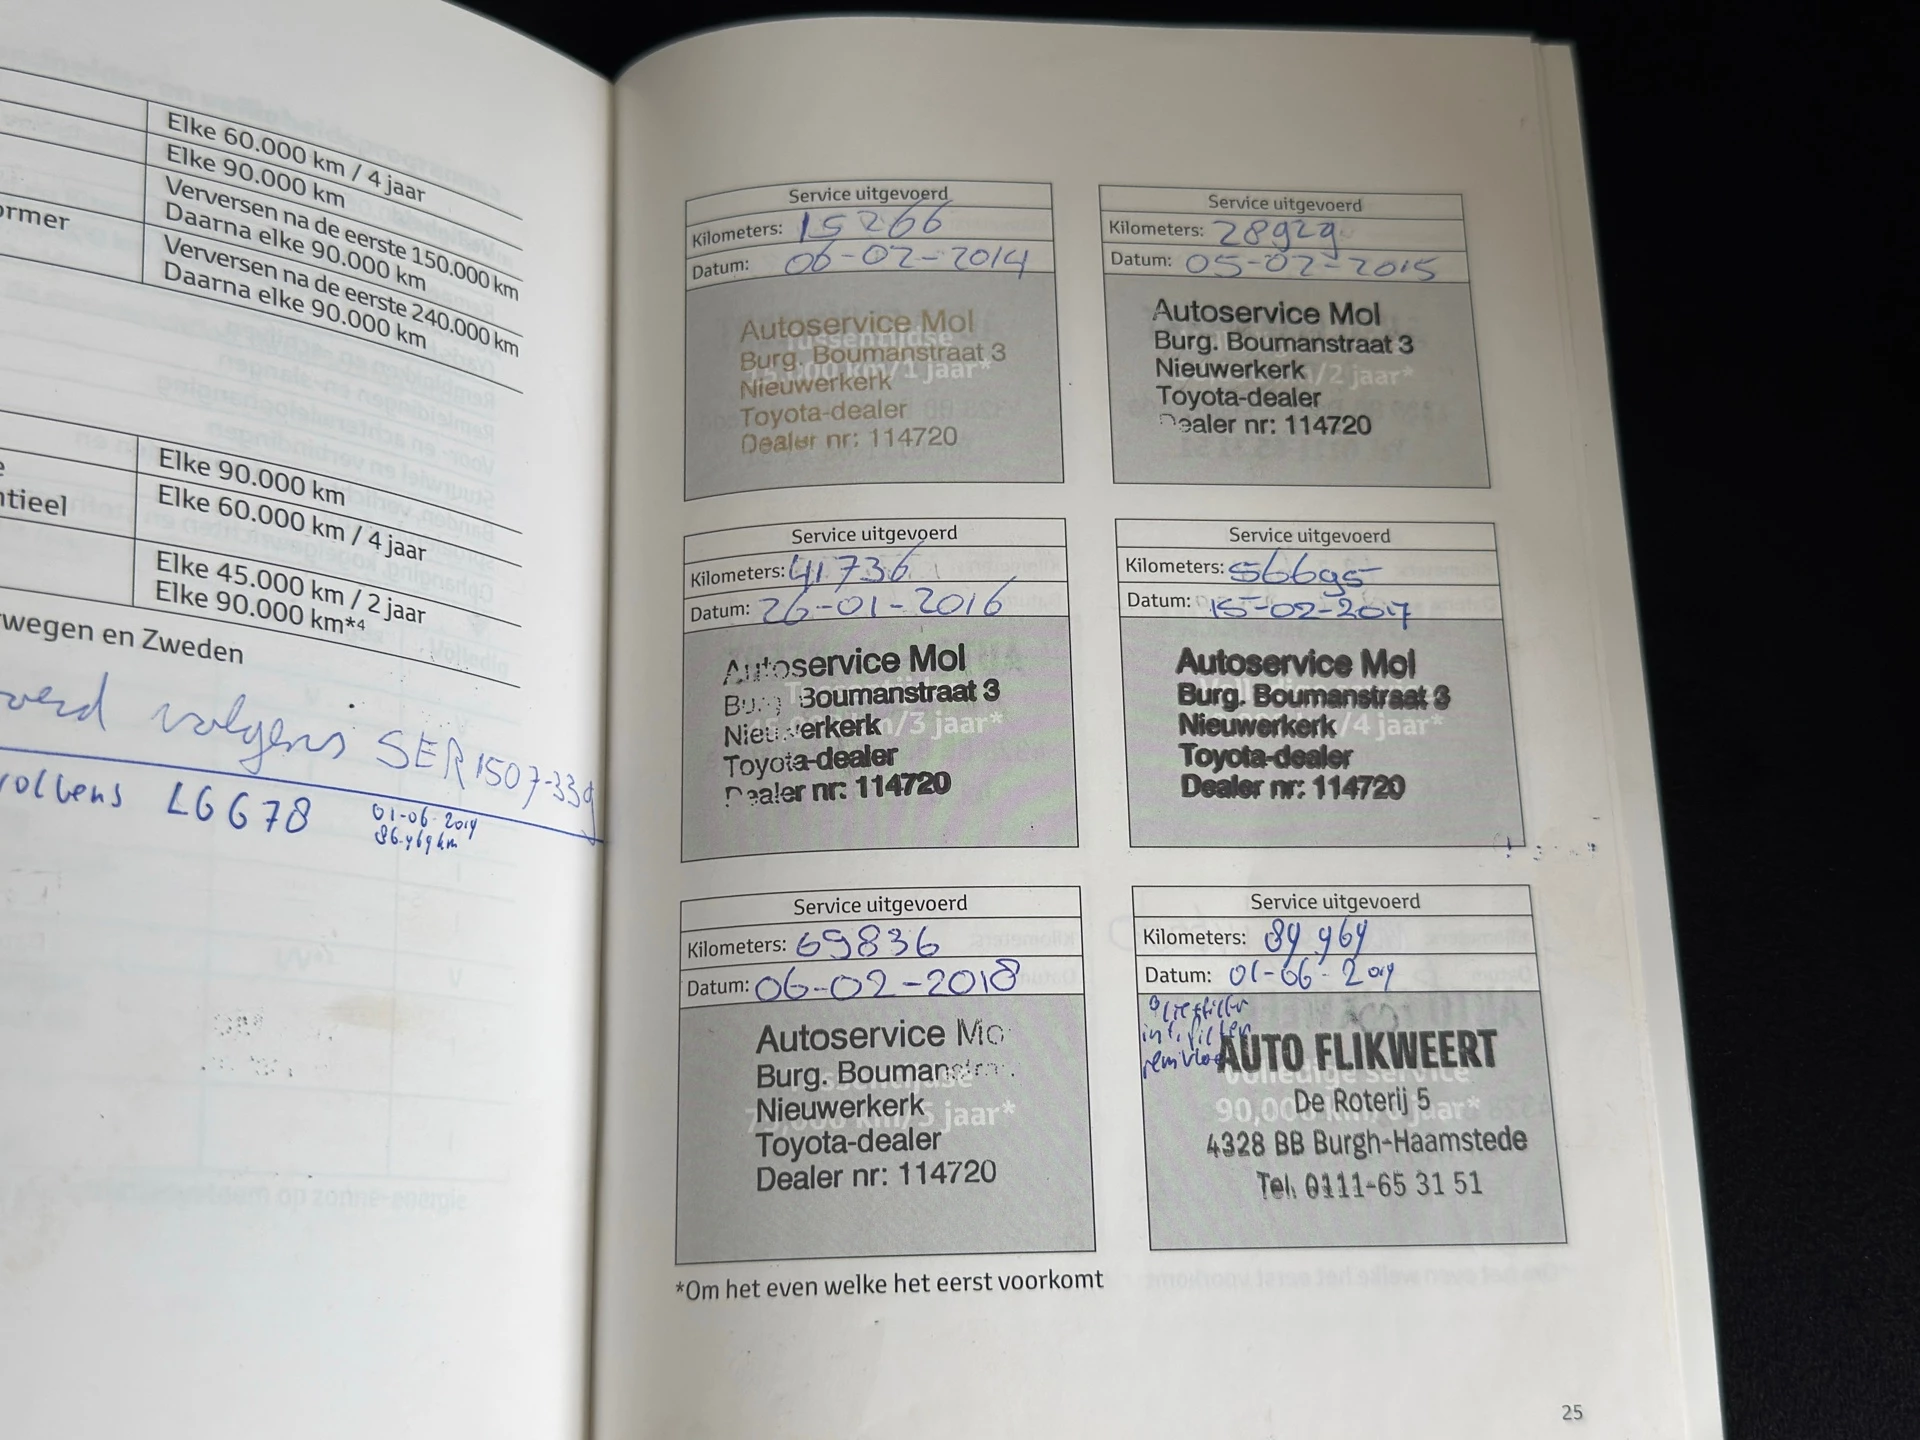 Elke 60.000 km / 4 jaar
Elke 90.000 km
Verversen na de eerste 150.000 km
Daarna elke 90.000 km
ormer
Verversen na de eerste 240.000 km
Daarna elke 90.000 km
Elke 90.000 km
ntieel
Elke 60.000 km / 4 jaar
Elke 45.000 km / 2 jaar
Elke 90.000 km*⁴
rwegen en Zweden
oerd volgens SER1507-339
LGG78
01-06-2019
Service uitgevoerd
Kilometers: 15266
Datum: 06-02-2014
Autoservice Mol
Tussentijdse
Burg. Boumanstraat 3
15.000 km/1 jaar*
Nieuwerkerk
Toyota-dealer
Dealer nr: 114720
Service uitgevoerd
Kilometers: 28929
Datum: 05-02-2015
Autoservice Mol
Burg. Boumanstraat 3
Nieuwerkerk
/2 jaar*
Toyota-dealer
Dealer nr: 114720
Service uitgevoerd
Kilometers: 41736
Datum: 26-01-2016
Autoservice Mol
Burg. Boumanstraat 3
Nieuwerkerk
/3 jaar*
Toyota-dealer
Dealer nr: 114720
Service uitgevoerd
Kilometers: 56695
Datum: 15-02-2017
Autoservice Mol
Burg. Boumanstraat 3
Nieuwerkerk
/4 jaar*
Toyota-dealer
Dealer nr: 114720
Service uitgevoerd
Kilometers: 69836
Datum: 06-02-2018
Autoservice Mo
Burg. Boumanstraat
Nieuwerkerk
/5 jaar*
Toyota-dealer
Dealer nr: 114720
Service uitgevoerd
Kilometers:
Datum: 01-06-2019
AUTO FLIKWEERT
Volledige service
De Roterij 5
90,000 jaar*
4328 BB Burgh-Haamstede
Tel. 0111-65 31 51
*Om het even welke het eerst voorkomt
25